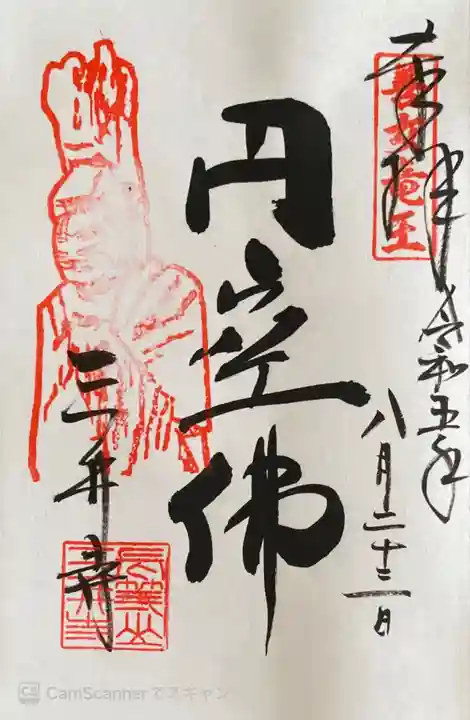 奉拝
善女竜王
令和五年
八月二十二日
円空佛
三井寺
長等山
三井寺
CamScannerでスキャン